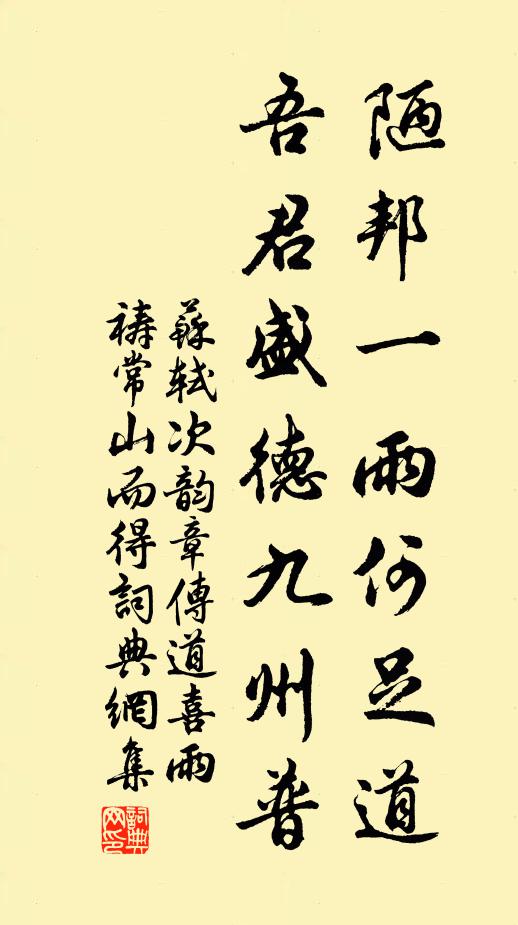 陋邦一雨何足道
吾君盛德九州普
蘇軾次韵章傳道喜雨
禱常山而得詞典網集
詞典網印